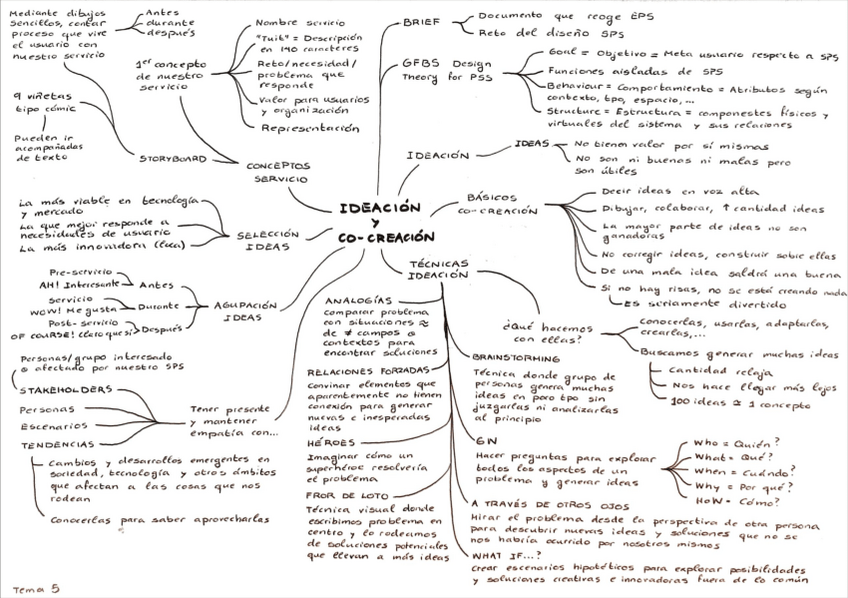 Mediante dibujos
sencillos, contar
proceso que vive
el usuario con
nuestro servicio
Antes
durante
después
9 viñetas
tipo cómic
Pueden ir
acompañadas
de texto
STORYBOARD
1er concepto
de nuestro
servicio
Nombre servicio
"Tuit" = Descripción
en 140 caracteres
Reto/necesidad/
problema que
responde
Valor para usuarios
y organización
Representación
CONCEPTOS
SERVICIO
BRIEF
Documento que recoge EPS
Reto del diseño SPS
GFBS Design
Theory for PSS
Goal = Objetivo = Meta usuario respecto a SPS
Funciones aisladas de SPS
Behaviour = Comportamiento = Atributos según
contexto, tpo, espacio,...
Structure = Estructura = componestes físicos y
virtuales del sistema y sus relaciones
IDEACIÓN
IDEAS
No tienen valor por sí mismas
No son ni buenos ni malas pero
son útiles
IDEACIÓN
y
CO-CREACIÓN
BÁSICOS
CO-CREACIÓN
Decir ideas en voz alta
Dibujar, colaborar, ↑ cantidad ideas
La mayor parte de ideas no son
ganadoras
No corregir ideas, construir sobre ellas
De una mala idea saldrá una buena
Si no hay risas, no se está creando nada
Es seriamente divertido
SELECCIÓN
IDEAS
La más viable en tecnología
y mercado
La que mejor responde a
necesidades de usuario
La más innovadora (loca)
AGUPACIÓN
IDEAS
Pre-servicio
AH! Interesante
Antes
Servicio
WOW! Me gusta
Durante
Post-servicio
OF COURSE! Claro que sí
Después
Personas/grupo interesado
o afectado por nuestro SPS
STAKEHOLDERS
Personas
Escenarios
TENDENCIAS
Tener presente
y mantener
empatía con...
Cambios y desarrollos emergentes en
sociedad, tecnología y otros ámbitos
que afectan a las cosas que nos
rodean
Conocerlas para saber aprovecharlas
TÉCNICAS
IDEACIÓN
ANALOGÍAS
comparar problema
con situaciones ≈
de ≠ campos o
contextos para
encontrar soluciones
RELACIONES FORZADAS
Convinar elementos que
aparentemente no tienen
conexión para generar
nuevas e inesperadas
ideas
HÉROES
Imaginar cómo un
superhéroe resolvería
el problema
FROR DE LOTO
Técnica visual donde
escribimos problema en
centro y lo rodeamos
de soluciones potenciales
que llevan a más ideas
¿Qué hacemos
con ellas?
Conocerlas, usarlas, adaptarlas,
crearlas,...
Buscamos generar muchas ideas
Cantidad relaja
Nos hace llegar más lejos
100 ideas ≅ 1 concepto
BRAINSTORMING
Técnica donde grupo de
personas genera muchas
ideas en poco tpo sin
juzgarlas ni analizarlas
al principio
6W
Hacer preguntas para explorar
todos los aspectos de un
problema y generar ideas
Who = Quién?
What = Qué?
When = Cuándo?
Why = Por qué?
HoW = Cómo?
A TRAVÉS DE OTROS OJOS
Mirar el problema desde la perspectiva de otra persona
para descubrir nuevas ideas y soluciones que no se
nos habría ocurrido por nosotros mismos
WHAT IF...?
Crear escenarios hipotéticos para explorar posibilidades
y soluciones creativas e innovadoras fuera de lo común
Tema 5